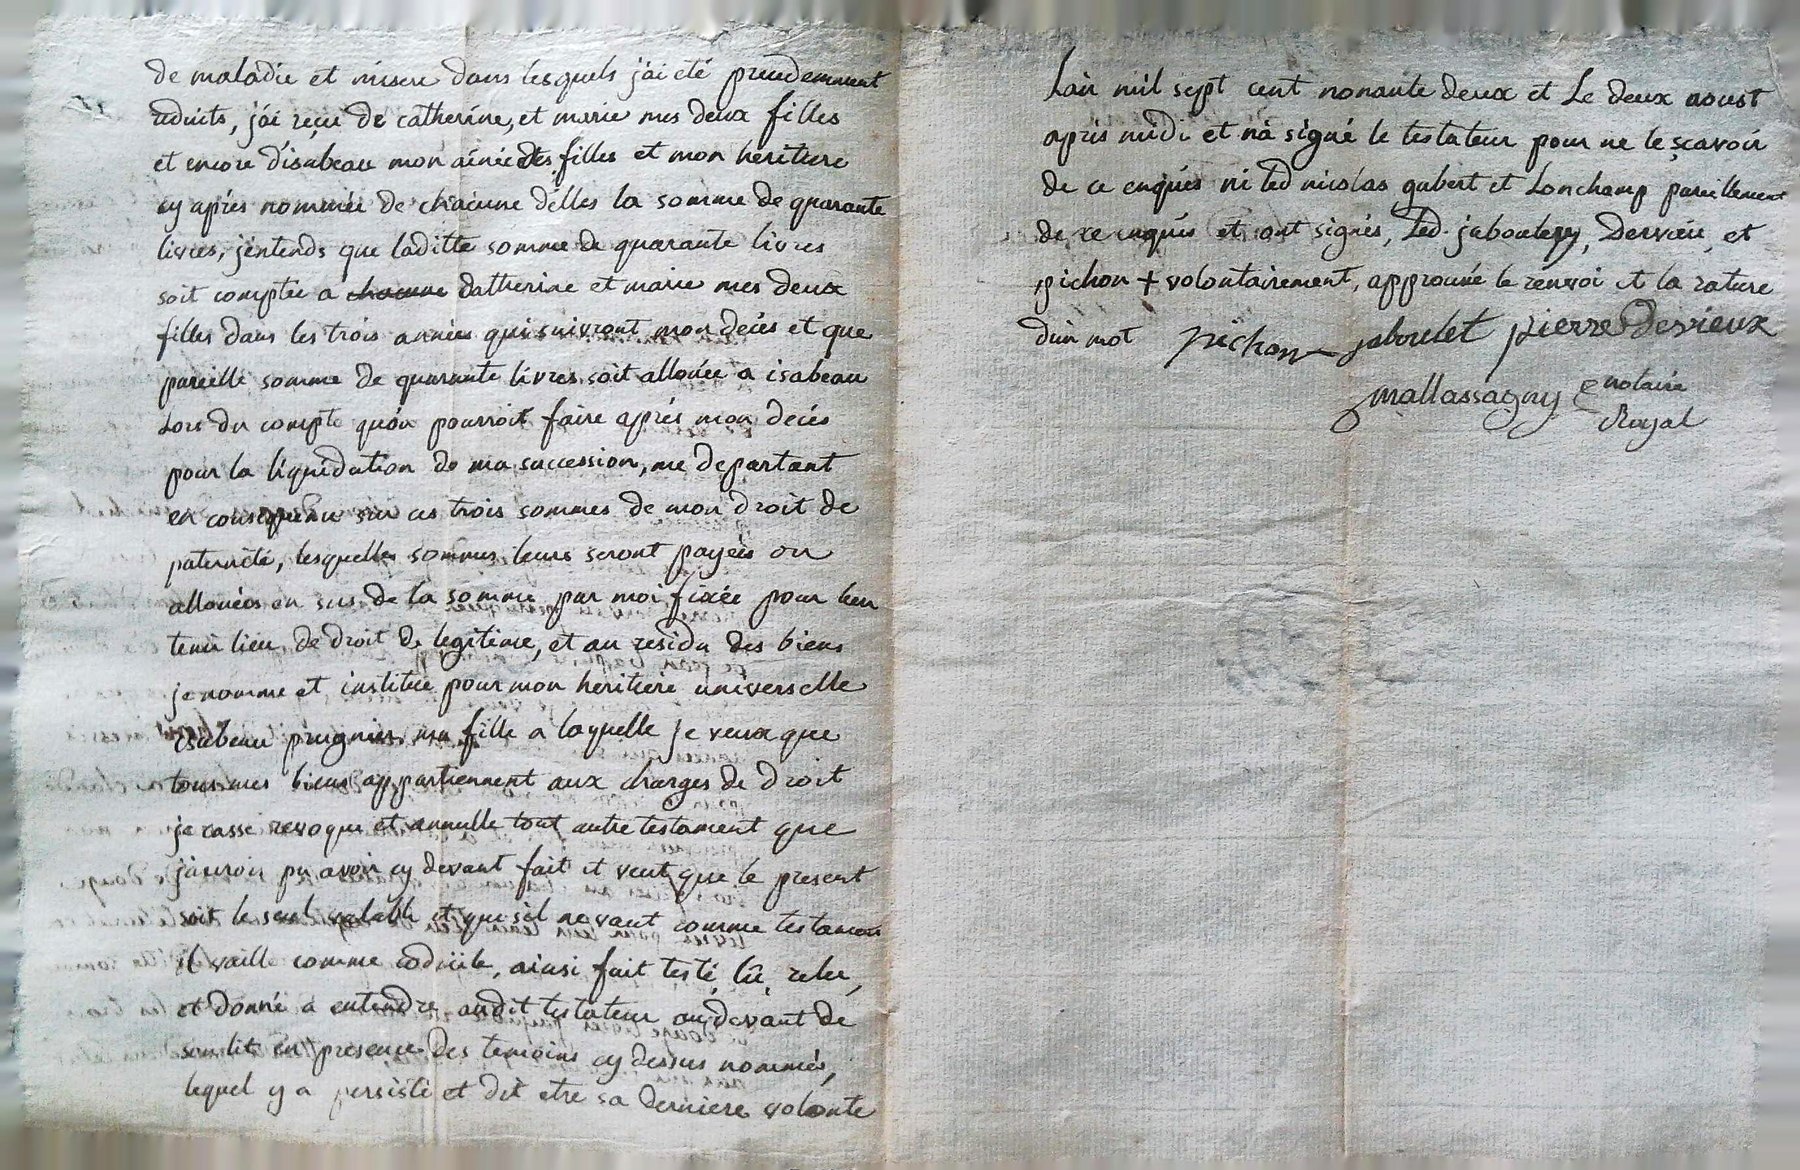 de maladie et misere dans lesquels j'ai eté preudemment
réduits, j'ai reçu de catherine, et marie mes deux filles
et encore d'isabeau mon ainée des filles et mon heritiere
cy aprés nommée de chacune d'elles la somme de quarante
livres, j'entends que laditte somme de quarante livres
soit comptée a chacune Catherine et marie mes deux
filles dans les trois années qui suivront mon decés et que
pareille somme de quarante livres soit allouée a isabeau
Lors du compte qu'on pourroit faire aprés mon decés
pour la liquidation de ma succession, me departant
en consequence sur ces trois sommes de mon droit de
paternité, lesquelles sommes leurs seront payées ou
allouées en sus de la somme par moi fixée pour leur
tenir lieu de droit de legitime, et au residu des biens
je nomme et institue pour mon heritiere universelle
isabeau prugnier ma fille a laquelle je veux que
tous mes biens appartiennent aux charges de droit
je casse revoque et annulle tout autre testament que
j'aurois pu avoir cy devant fait et veut que le present
soit le seul valable et que s'il ne vaut comme testament
il vaille comme codicile, ainsi fait testé, lû, relu,
et donné a entendre audit testateur au devant de
son lit en presence des temoins cy dessus nommés,
lequel y a persisté et dit etre sa derniere volonté
L'an mil sept cent nonante deux et Le deux aoust
aprés midi et n'a signé le testateur pour ne le sçavoir
de ce enquis ni led nicolas gubert et Lonchamp pareillement
de ce enquis et ont signés, Led. jaboulay, Dervieu, et
pichon + volontairement, approuvé le renvoi et la rature
d'un mot pichon jaboulet pierre Dervieux
Mallassagny notaire
Royal